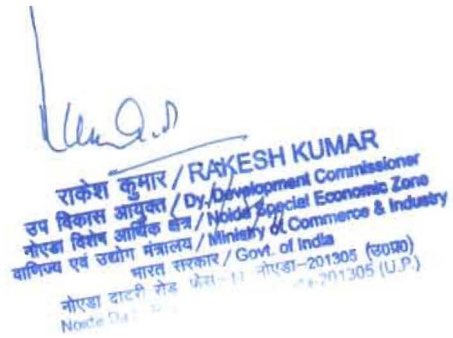 राकेश कुमार / RAKESH KUMAR
उप विकास आयुक्त / Dy. Development Commissioner
नोएडा विशेष आर्थिक क्षेत्र / Noida Special Economic Zone
वाणिज्य एवं उद्योग मंत्रालय / Ministry of Commerce & Industry
भारत सरकार / Govt. of India
नोएडा दादरी रोड, फेस-11, नोएडा-201305 (उ0प्र0)
201305 (U.P.)